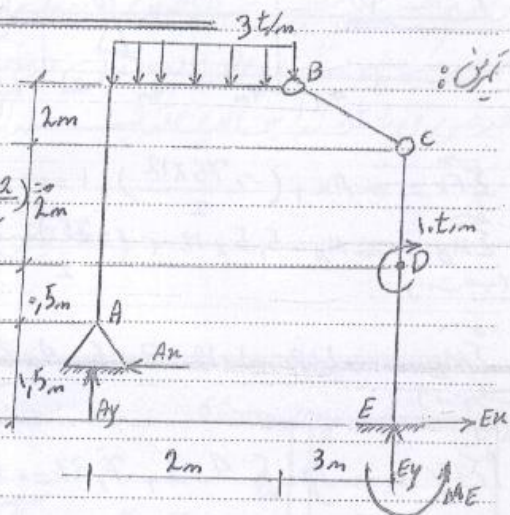 3 t/m
B
2m
C
2
2m
1.t.m
D
0,5m
A
Ax
1,5m
Ay
E
Ex
2m
3m
Ey
ME